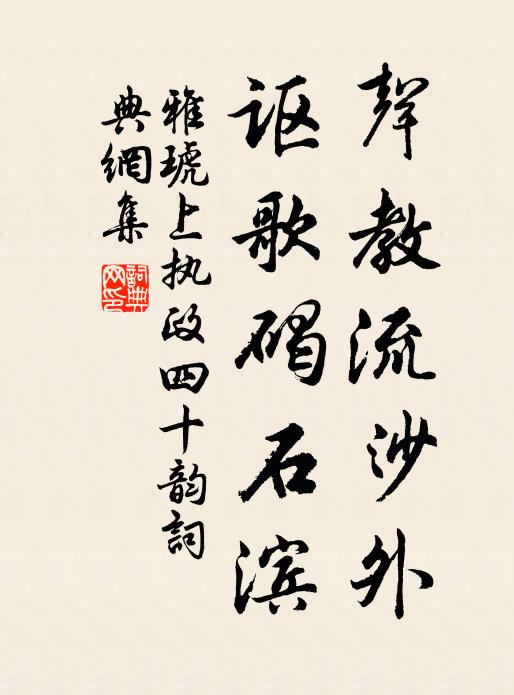 声教流沙外
讴歌碣石滨
雅琥上执政四十韵詞
典網集
詞典网印